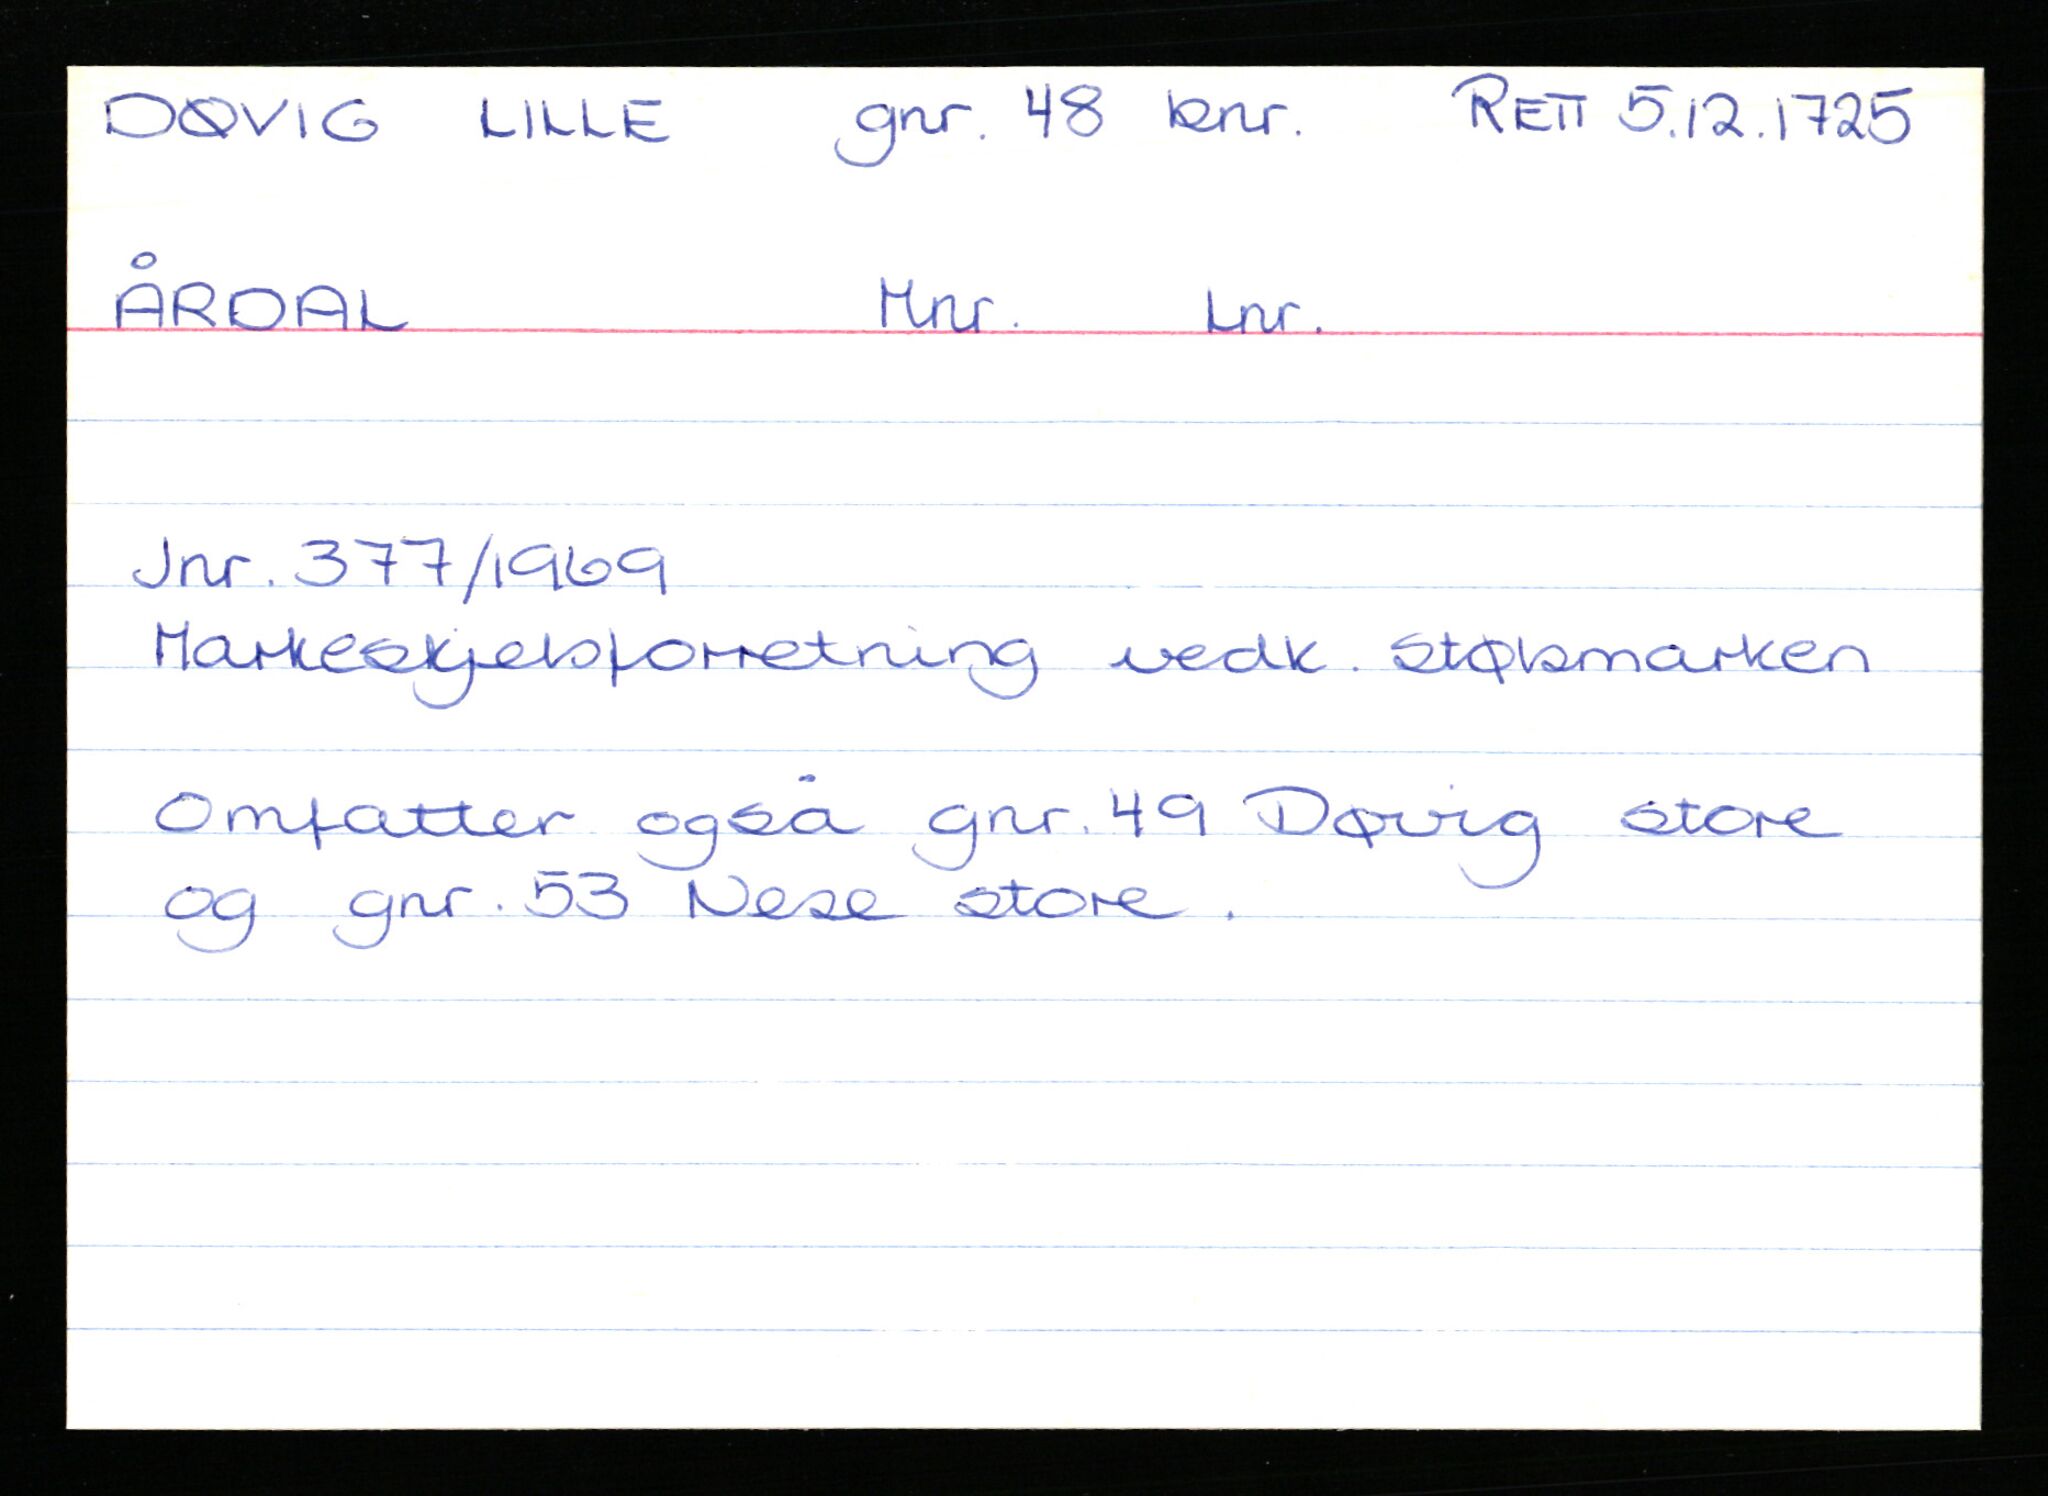 DØVIG LILLE gnr. 48 bnr. RETT 5.12.1725
ÅRDAL Mnr. Lnr.
Jnr. 377/1969
Markeskjelsforretning vedk. stølsmarken
Omfatter også gnr. 49 Døvig store
og gnr. 53 Nese store.